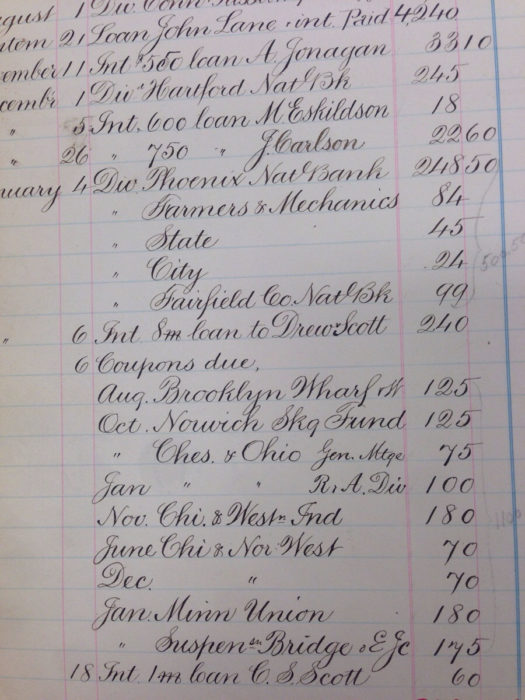 gust 1 Div. Conn.
tem 21 Loan John Lane & int. Paid 4,240
ember 11 Int $550 loan A. Jonagan 33 10
cembr 1 Div Hartford Natl Bk 245
" 5 Int. 600 loan M. Eskildson 18
" 26 " 750 " J. Carlson 22 60
nuary 4 Div. Phoenix Natl Bank 248 50
" Farmers & Mechanics 84
" State 45
" City 24
" Fairfield Co. Natl Bk 99
" 6 Int. 8m loan to Drew & Scott 240
6 Coupons due,
Aug. Brooklyn Wharf & W 125
Oct. Norwich Skg Fund 125
" Ches. & Ohio Gen. Mtge 75
Jan " " R. & A. Div 100
Nov. Chi. & Westn Ind 180
June Chi & Nor West 70
Dec. " 70
Jan. Minn Union 180
" Suspensn Bridge & E Jc 175
18 Int. 1m loan C. S. Scott 60